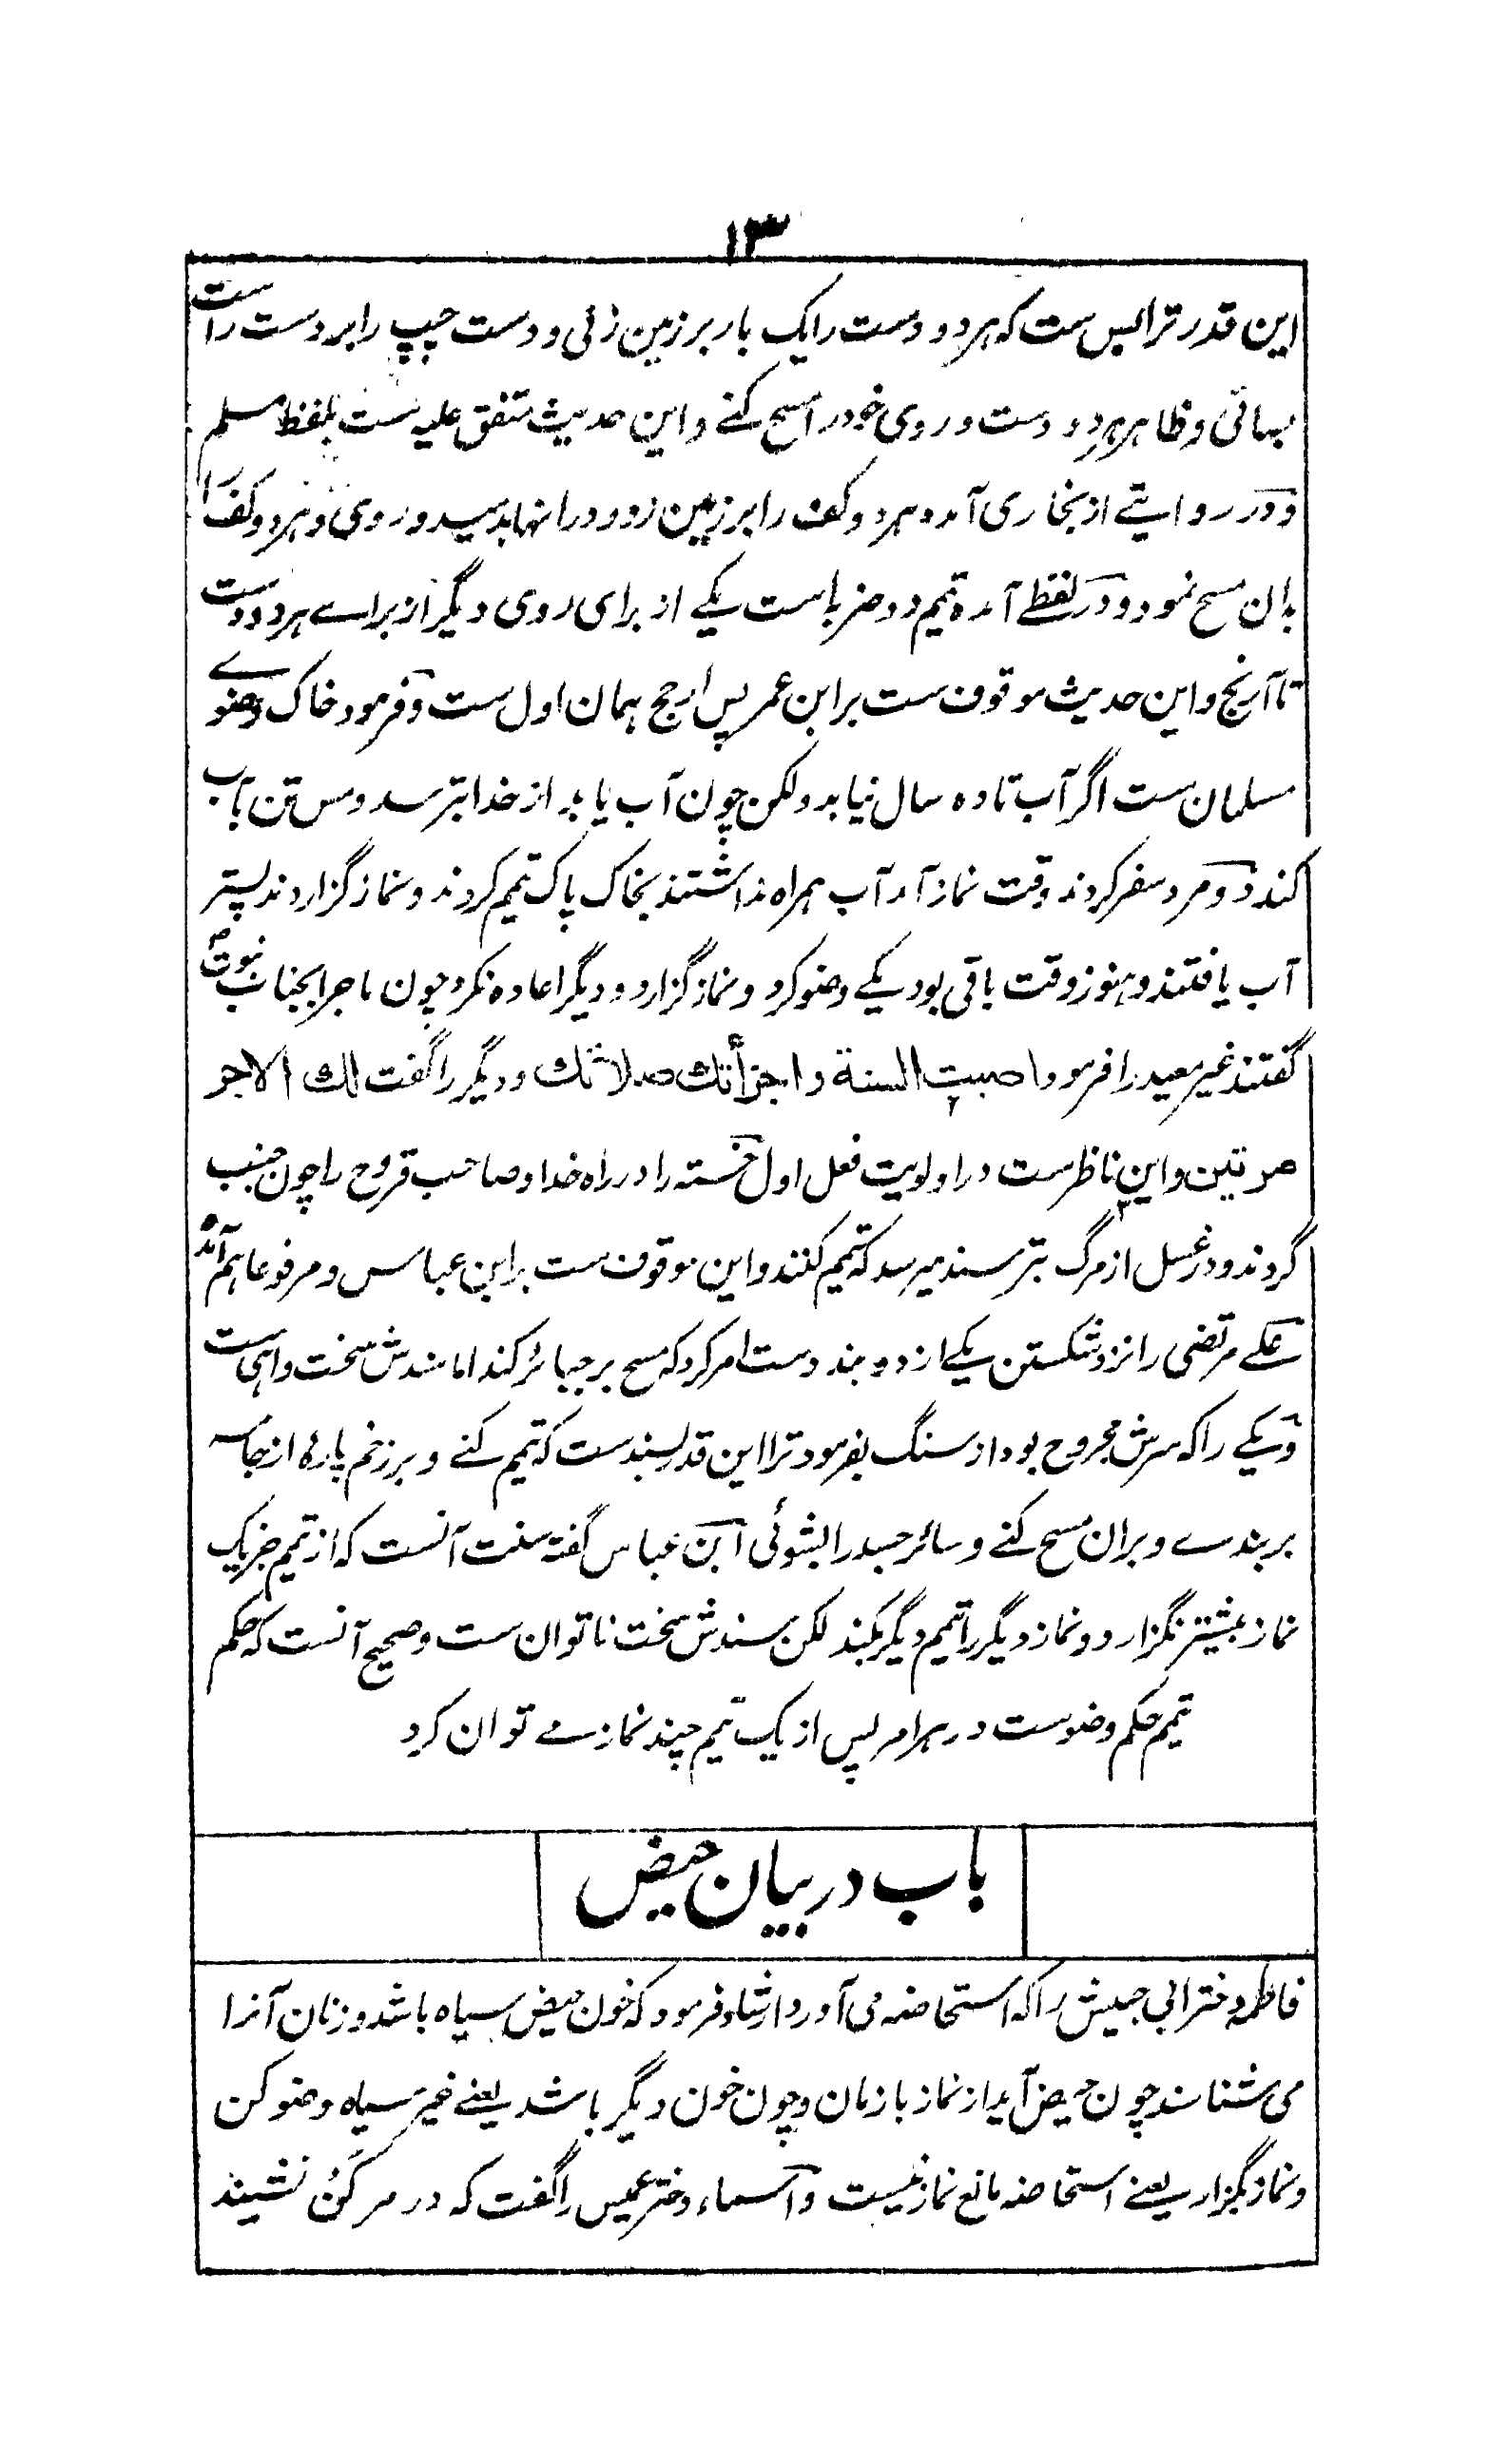 ۱۳
این قدر ترا بس ست که هر دو دست را یک بار بر زمین زنی و دست چپ را بر دست راست
بمائی و ظاهر هر دو دست و روی خود را مسح کنے و این حدیث متفق علیه ست بلفظ مسلم
و در روایتے از بخاری آمده هر دو کف را بر زمین زد و در انها بدمید و روی و هر دو کف را
بان مسح نمود و در لفظے آمده تیمم دو ضرباست یکے از برای روی دیگر از براے هر دو دست
تا آرنج و این حدیث موقوف ست بر ابن عمر پس ارجح همان اول ست و فرمود خاک وضوے
مسلمان ست اگر آب تا ده سال نیابد ولکن چون آب یابد از خدا بترسد و مس تن بآب
کند و دو مرد سفر کردند وقت نماز آمد آب همراه نداشتند بخاک پاک تیمم کردند و نماز گزاردند پستر
آب یافتند و هنوز وقت باقی بود یکے وضو کرد و نماز گزارد و دیگر اعاده نکرد چون ماجرا بجناب نبوت
گفتند غیر معید را فرمود اصبت السنة واجزأتك صلاتك و دیگر را گفت لك الاجر
مرتین و این ناظر ست در اولویت فعل اول خسته را در راه خدا و صاحب قروح را چون جنب
گردند و در غسل از مرگ بترسند میرسد که تیمم کنند و این موقوف ست بر ابن عباس و مرفوعا هم آمده
علے مرتضی را نزد شکستن یکے از دو بند دست امر کرد که مسح بر جبائر کند اما سندش سخت واهی ست
و یکے را که سرش مجروح بود از سنگ بفرمود ترا این قدر بسندست که تیمم کنے و بر زخم پارهٔ از جامه
بربندے و بران مسح کنے و سائر جسد را بشوئی ابن عباس گفته سنت آنست که از تیمم جز یک
نماز بیشتر نگزارد و نماز دیگر را تیمم دیگر بکند لکن سندش سخت ناتوان ست و صحیح آنست که حکم
تیمم حکم وضوست در هر امر پس از یک تیمم چند نماز مے توان کرد
باب در بیان حیض
فاطمه دختر ابی حبیش را که استحاضه می آورد ارشاد فرمود که خون حیض سیاه باشد و زنان آنرا
می شناسند چون حیض آید از نماز باز مان و چون خون دیگر باشد یعنے غیر سیاه وضو کن
و نماز بگزار یعنے استحاضه مانع نماز نیست و اسماء دختر عمیس را گفت که در مرکن نشیند